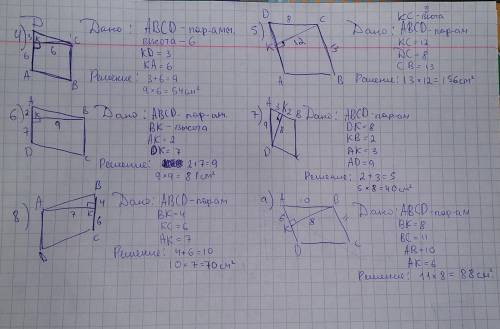 4) Дано: ABCD - пар-амм.
высота - 6
KD = 3
KA = 6
Решение: 3+6=9
9×6=54см²
D
3
K
6
C
6
A
B
5) KC - высота
Дано: ABCD - пар-ам
KC = 12
DC = 8
CB = 13
Решение: 13×12=156см²
D
8
C
K
12
A
B
6) Дано: ABCD - пар-ам.
BK - высота
AK = 2
DK = 7
Решение: 2+7=9
9×9=81см²
A
2
K
9
B
7
D
C
7) Дано: ABCD - пар-ам
DK = 8
KB = 2
AK = 3
AD = 9
Решение: 2+3=5
5×8=40см²
A 3 K 2 B
9
8
D
C
8) Дано: ABCD - пар-ам
BK = 4
KC = 6
AK = 7
Решение: 4+6=10
10×7=70см²
B
A
4
7
K
6
C
9) Дано: ABCD - пар-ам
BK = 8
BC = 11
AB = 10
AK = 6
Решение: 11×8=88см²
A
10
B
6
K
8
11
D
C